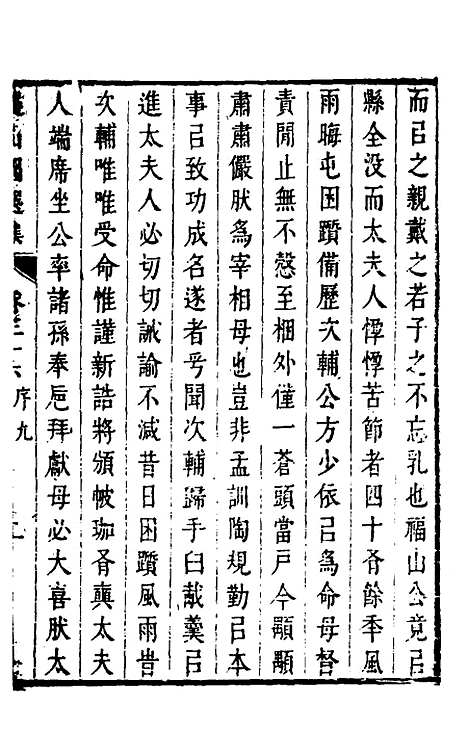 而㠯之親戴之若子之不忘乳也福山公竟㠯
縣全没而太夫人惸惸苦節者四十𠕅餘季風
雨晦屯困躓備歷次輔公方少依㠯為命母督
責閒止無不慤至梱外僅一蒼頭當戶今顯顯
肅肅儼肰為宰相母也豈非孟訓陶規勤㠯本
事㠯致功成名遂者乎聞次輔歸手臼𩜠羹㠯
進太夫人必切切誡諭不減昔日困躓風雨旹
次輔唯唯受命惟謹新誥將頒帔珈𠕅𧴦太夫
人端席坐公率諸孫奉卮拜獻母必大喜肰太
集
卷三十六 序九